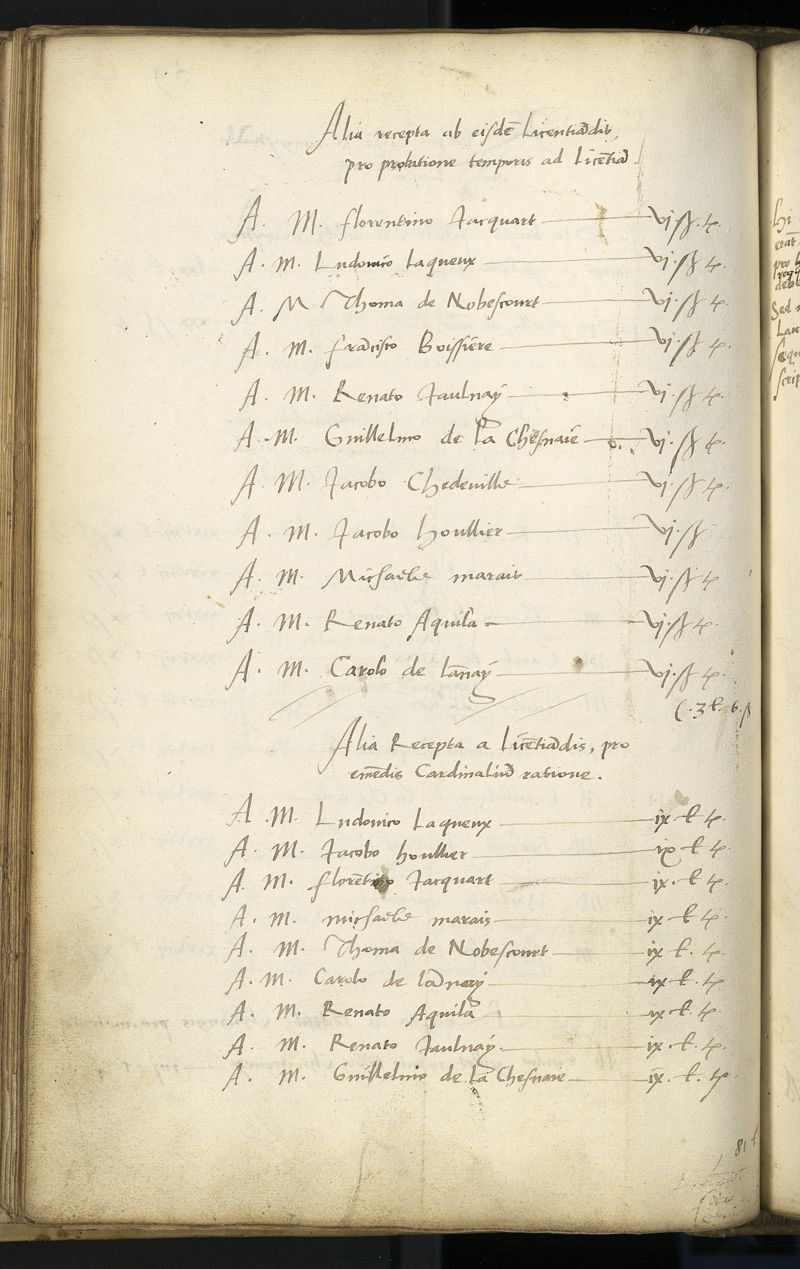 Alia recepta ab eisdē Licentiādis,
pro probatione temporis ad Licētiā.
A. M. florentino Jacquart — vj. ß. t.
A. M. Ludovico Laqueux — vj. ß t.
A. M Thoma de Nobescourt — vj. ß t.
A. M. frācisco Boissiere — vj ß t.
A. M. Renato Jaulnay — vj. ß t.
A. M. Guillelmo de la Chesnaie — vj. ß t.
A. M. Jacobo Chedeville — vj. ß t.
A. M. Jacobo houllier — vj. ß
A. M. Michaele marais — vj. ß t.
A. M. Renato Aquila — vj. ß t.
A. M. Carolo de lānay — vj. ß. t.
3 l. 6. ß
Alia Recepta a licētiādis, pro
emēdis Cardinaliū ratione.
A. M. Ludovico Laqueux — ix l t.
A. M. Jacobo houllier — ix l t.
A. M. florētino Jacquart — ix. l t.
A. M. michaele marais — ix l t.
A. M. Thoma de Nobescourt — ix l. t.
A. M. Carolo de lānay — ix l t.
A. M. Renato Aquila — ix l t.
A. M. Renato Jaulnay. — ix. l. t.
A. M. Guillelmo de la Chesnaie — ix. l. t.
81 l